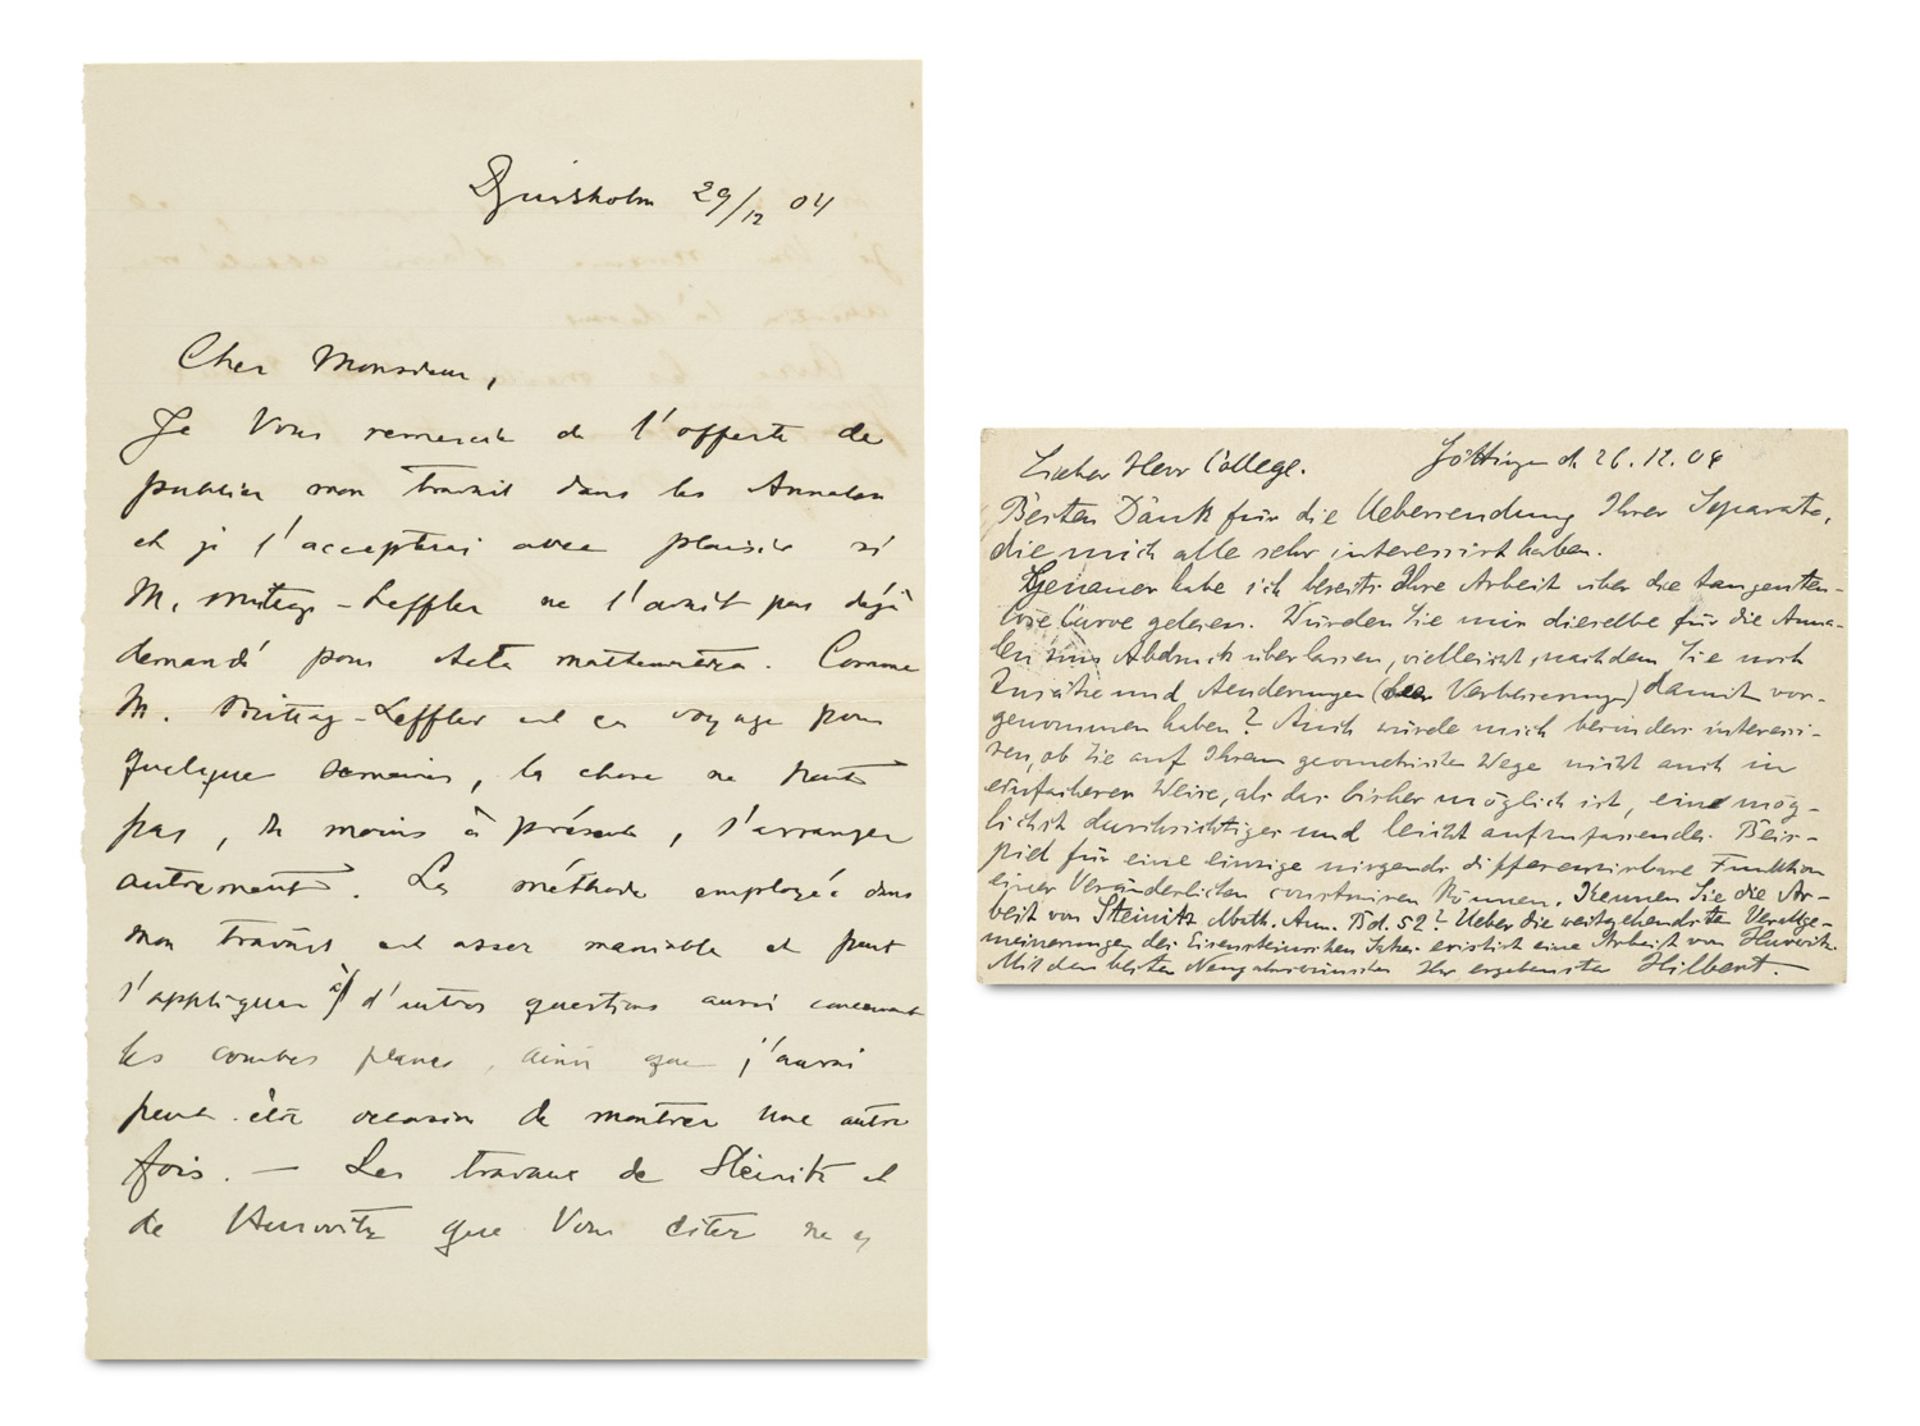 Djursholm 29/12 04
Cher Monsieur,
Je Vous remercie de l'offerte de
publier mon travail dans les Annalen
et je l'accepterai avec plaisir si
M. Mittag-Leffler ne l'avait pas déjà
demandé pour Acta mathematica. Comme
M. Mittag-Leffler est en voyage pour
quelque semaines, la chose ne peut
pas, du moins à présent, s'arranger
autrement. La méthode employée dans
mon travail est assez maniable et peut
s'appliquer à d'autres questions aussi concernant
les courbes planes, ainsi que j'aurai
peut-être occasion de montrer une autre
fois. — Les travaux de Steinitz et
de Hurwitz que Vous citez ne
Lieber Herr College. Göttingen d. 26.12.04
Besten Dank für die Uebersendung Ihrer Separata,
die mich alle sehr interessirt haben.
Genauer habe ich bereits Ihre Arbeit über die tangenten-
lose Curve gelesen. Würden Sie mir dieselbe für die Anna-
len zum Abdruck überlassen, vielleicht, nachdem Sie noch
Zusätze und Aenderungen (Verbesserungen) damit vor-
genommen haben? Auch würde mich besonders interessi-
ren, ob Sie auf Ihrem geometrischen Wege nicht auch in
einfacherer Weise, als das bisher möglich ist, eine mög-
lichst durchsichtiges und leicht aufzufassendes Beis-
piel für eine einzige nirgends differenzirbare Funktion
einer Veränderlichen construiren können. Kennen Sie die Ar-
beit von Steinitz Math. Ann. Bd. 52? Ueber die weitgehendste Verallge-
meinerungen des Eisensteinschen Satzes existirt eine Arbeit von Hurwitz.
Mit den besten Neujahrswünschen Ihr ergebenster Hilbert.